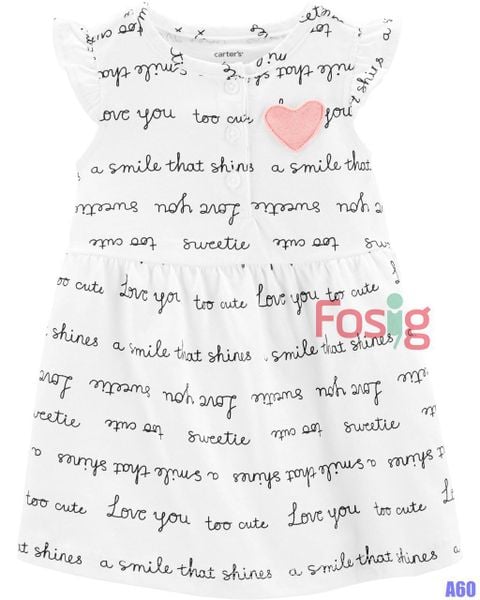 carter's
smile that
smile that
you
shines
Love you too cute you
a smile that shines a smile that
sweetie Love you sweetie
too cute sweetie too cute
too cute Love you too cute Love you too cute
Fosig
shines a smile that shines smile that shines
Love you sweetie Love you sweetie
sweetie too cute sweetie too cute sweetie
a smile that shines a smile that shines a
too cute Love you too cute Love you too cute
at shines a smile that shines a smile that shines a
A60